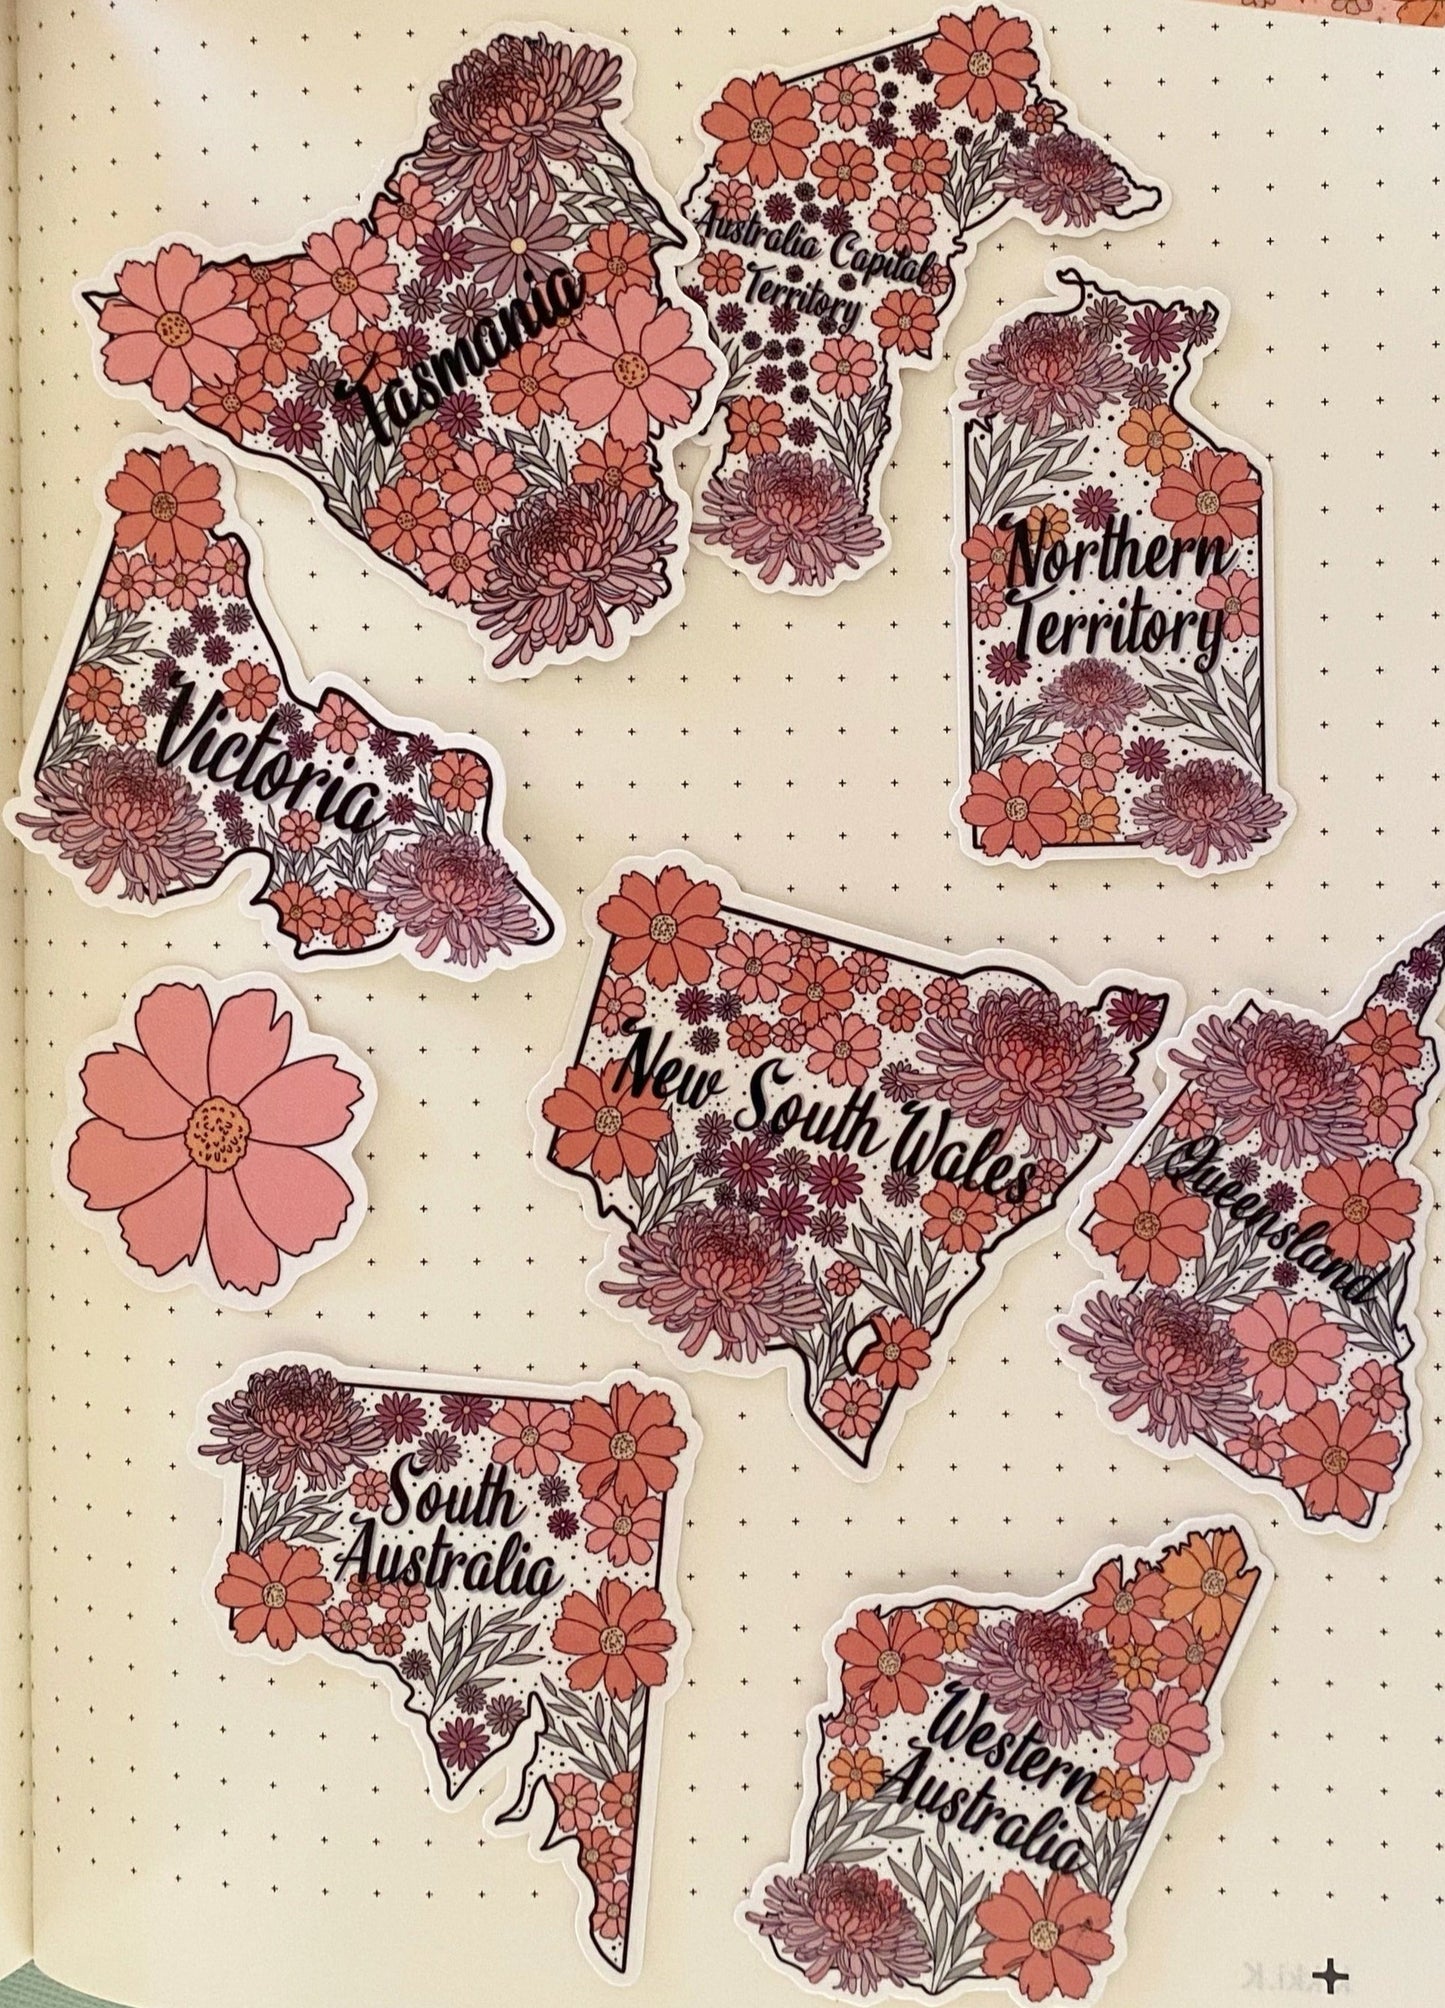 Tasmania
Australia Capital
Territory
Northern
Territory
Victoria
New South Wales
Queensland
South
Australia
Western
Australia